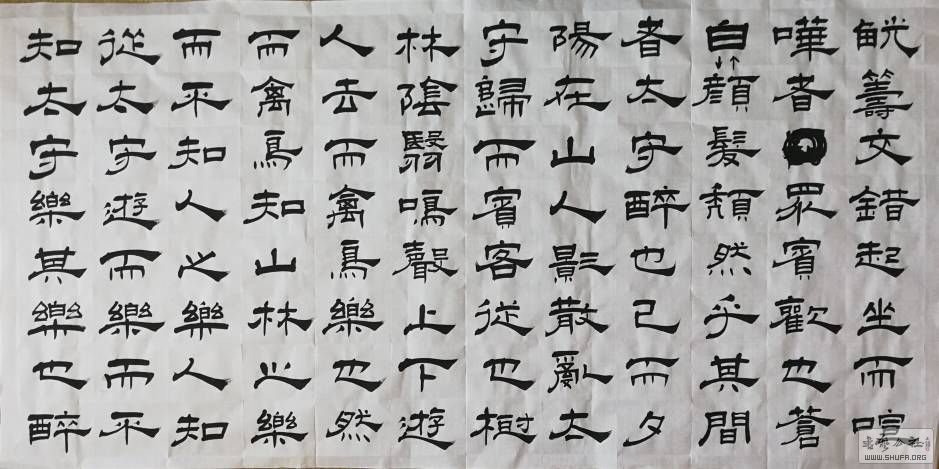 觥籌交錯起坐而喧
嘩者眾賓歡也蒼
白顏髮頹然乎其間
者太守醉也已而夕
陽在山人影散亂太
守歸而賓客從也樹
林陰翳鳴聲上下遊
人去而禽鳥樂也然
而禽鳥知山林之樂
而不知人之樂人知
從太守遊而樂而不
知太守樂其樂也醉
WWW.SHUFA.ORG